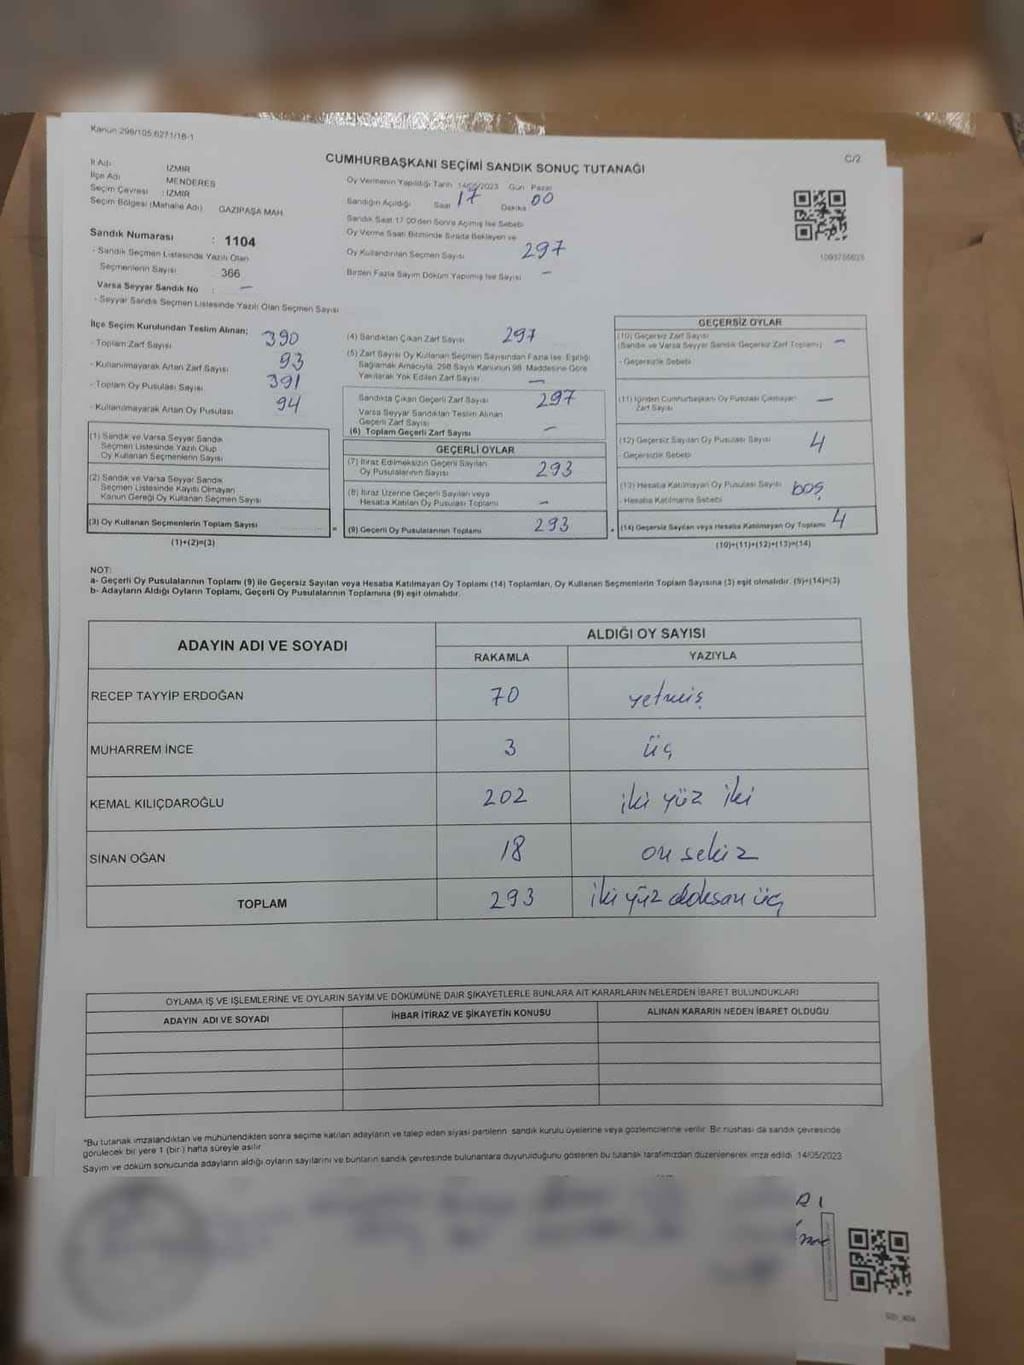 Kanun 298/105,6271/18-1
C/2
CUMHURBAŞKANI SEÇİMİ SANDIK SONUÇ TUTANAĞI
İl Adı : İZMİR
İlçe Adı MENDERES
Seçim Çevresi : İZMİR
Seçim Bölgesi (Mahalle Adı) GAZİPAŞA MAH.
Sandık Numarası : 1104
- Sandık Seçmen Listesinde Yazılı Olan
Seçmenlerin Sayısı 366
Varsa Seyyar Sandık No : -
- Seyyar Sandık Seçmen Listesinde Yazılı Olan Seçmen Sayısı
Oy Vermenin Yapıldığı Tarih 14/05/2023 Gün Pazar
Sandığın Açıldığı Saat 17 Dakika 00
Sandık Saat 17.00'den Sonra Açılmış İse Sebebi
Oy Verme Saati Bitiminde Sırada Bekleyen ve
Oy Kullandırılan Seçmen Sayısı 297
Birden Fazla Sayım Döküm Yapılmış İse Sayısı -
İlçe Seçim Kurulundan Teslim Alınan:
- Toplam Zarf Sayısı 390
- Kullanılmayarak Artan Zarf Sayısı 93
- Toplam Oy Pusulası Sayısı 391
- Kullanılmayarak Artan Oy Pusulası 94
(1) Sandık ve Varsa Seyyar Sandık
Seçmen Listesinde Yazılı Olup
Oy Kullanan Seçmenlerin Sayısı
(2) Sandık ve Varsa Seyyar Sandık
Seçmen Listesinde Kayıtlı Olmayan
Kanun Gereği Oy Kullanan Seçmen Sayısı
(3) Oy Kullanan Seçmenlerin Toplam Sayısı
(1)+(2)=(3)
(4) Sandıktan Çıkan Zarf Sayısı 297
(5) Zarf Sayısı Oy Kullanan Seçmen Sayısından Fazla İse, Eşitliği
Sağlamak Amacıyla, 298 Sayılı Kanunun 98. Maddesine Göre
Yakılarak Yok Edilen Zarf Sayısı -
Sandıkta Çıkan Geçerli Zarf Sayısı 297
Varsa Seyyar Sandıktan Teslim Alınan
Geçerli Zarf Sayısı -
(6) Toplam Geçerli Zarf Sayısı
GEÇERLİ OYLAR
(7) İtiraz Edilmeksizin Geçerli Sayılan
Oy Pusulalarının Sayısı 293
(8) İtiraz Üzerine Geçerli Sayılan veya
Hesaba Katılan Oy Pusulası Toplamı -
= (9) Geçerli Oy Pusulalarının Toplamı 293
GEÇERSİZ OYLAR
(10) Geçersiz Zarf Sayısı
(Sandık ve Varsa Seyyar Sandık Geçersiz Zarf Toplamı) -
- Geçersizlik Sebebi
(11) İçinden Cumhurbaşkanı Oy Pusulası Çıkmayan
Zarf Sayısı -
(12) Geçersiz Sayılan Oy Pusulası Sayısı 4
Geçersizlik Sebebi
(13) Hesaba Katılmayan Oy Pusulası Sayısı boş
- Hesaba Katılmama Sebebi
+ (14) Geçersiz Sayılan veya Hesaba Katılmayan Oy Toplamı 4
(10)+(11)+(12)+(13)=(14)
NOT:
a- Geçerli Oy Pusulalarının Toplamı (9) ile Geçersiz Sayılan veya Hesaba Katılmayan Oy Toplamı (14) Toplamları, Oy Kullanan Seçmenlerin Toplam Sayısına (3) eşit olmalıdır. (9)+(14)=(3)
b- Adayların Aldığı Oyların Toplamı, Geçerli Oy Pusulalarının Toplamına (9) eşit olmalıdır.
ADAYIN ADI VE SOYADI ALDIĞI OY SAYISI
RAKAMLA YAZIYLA
RECEP TAYYİP ERDOĞAN 70 yetmiş
MUHARREM İNCE 3 üç
KEMAL KILIÇDAROĞLU 202 iki yüz iki
SİNAN OĞAN 18 on sekiz
TOPLAM 293 iki yüz doksan üç
OYLAMA İŞ VE İŞLEMLERİNE VE OYLARIN SAYIM VE DÖKÜMÜNE DAİR ŞİKAYETLERLE BUNLARA AİT KARARLARIN NELERDEN İBARET BULUNDUKLARI
ADAYIN ADI VE SOYADI İHBAR İTİRAZ VE ŞİKAYETİN KONUSU ALINAN KARARIN NEDEN İBARET OLDUĞU
*Bu tutanak imzalandıktan ve mühürlendikten sonra seçime katılan adayların ve talep eden siyasi partilerin sandık kurulu üyelerine veya gözlemcilerine verilir. Bir nüshası da sandık çevresinde
görülecek bir yere 1 (bir) hafta süreyle asılır.
Sayım ve döküm sonucunda adayların aldığı oyların sayılarını ve bunların sandık çevresinde bulunanlara duyurulduğunu gösteren bu tutanak tarafımızdan düzenlenerek imza edildi. 14/05/2023